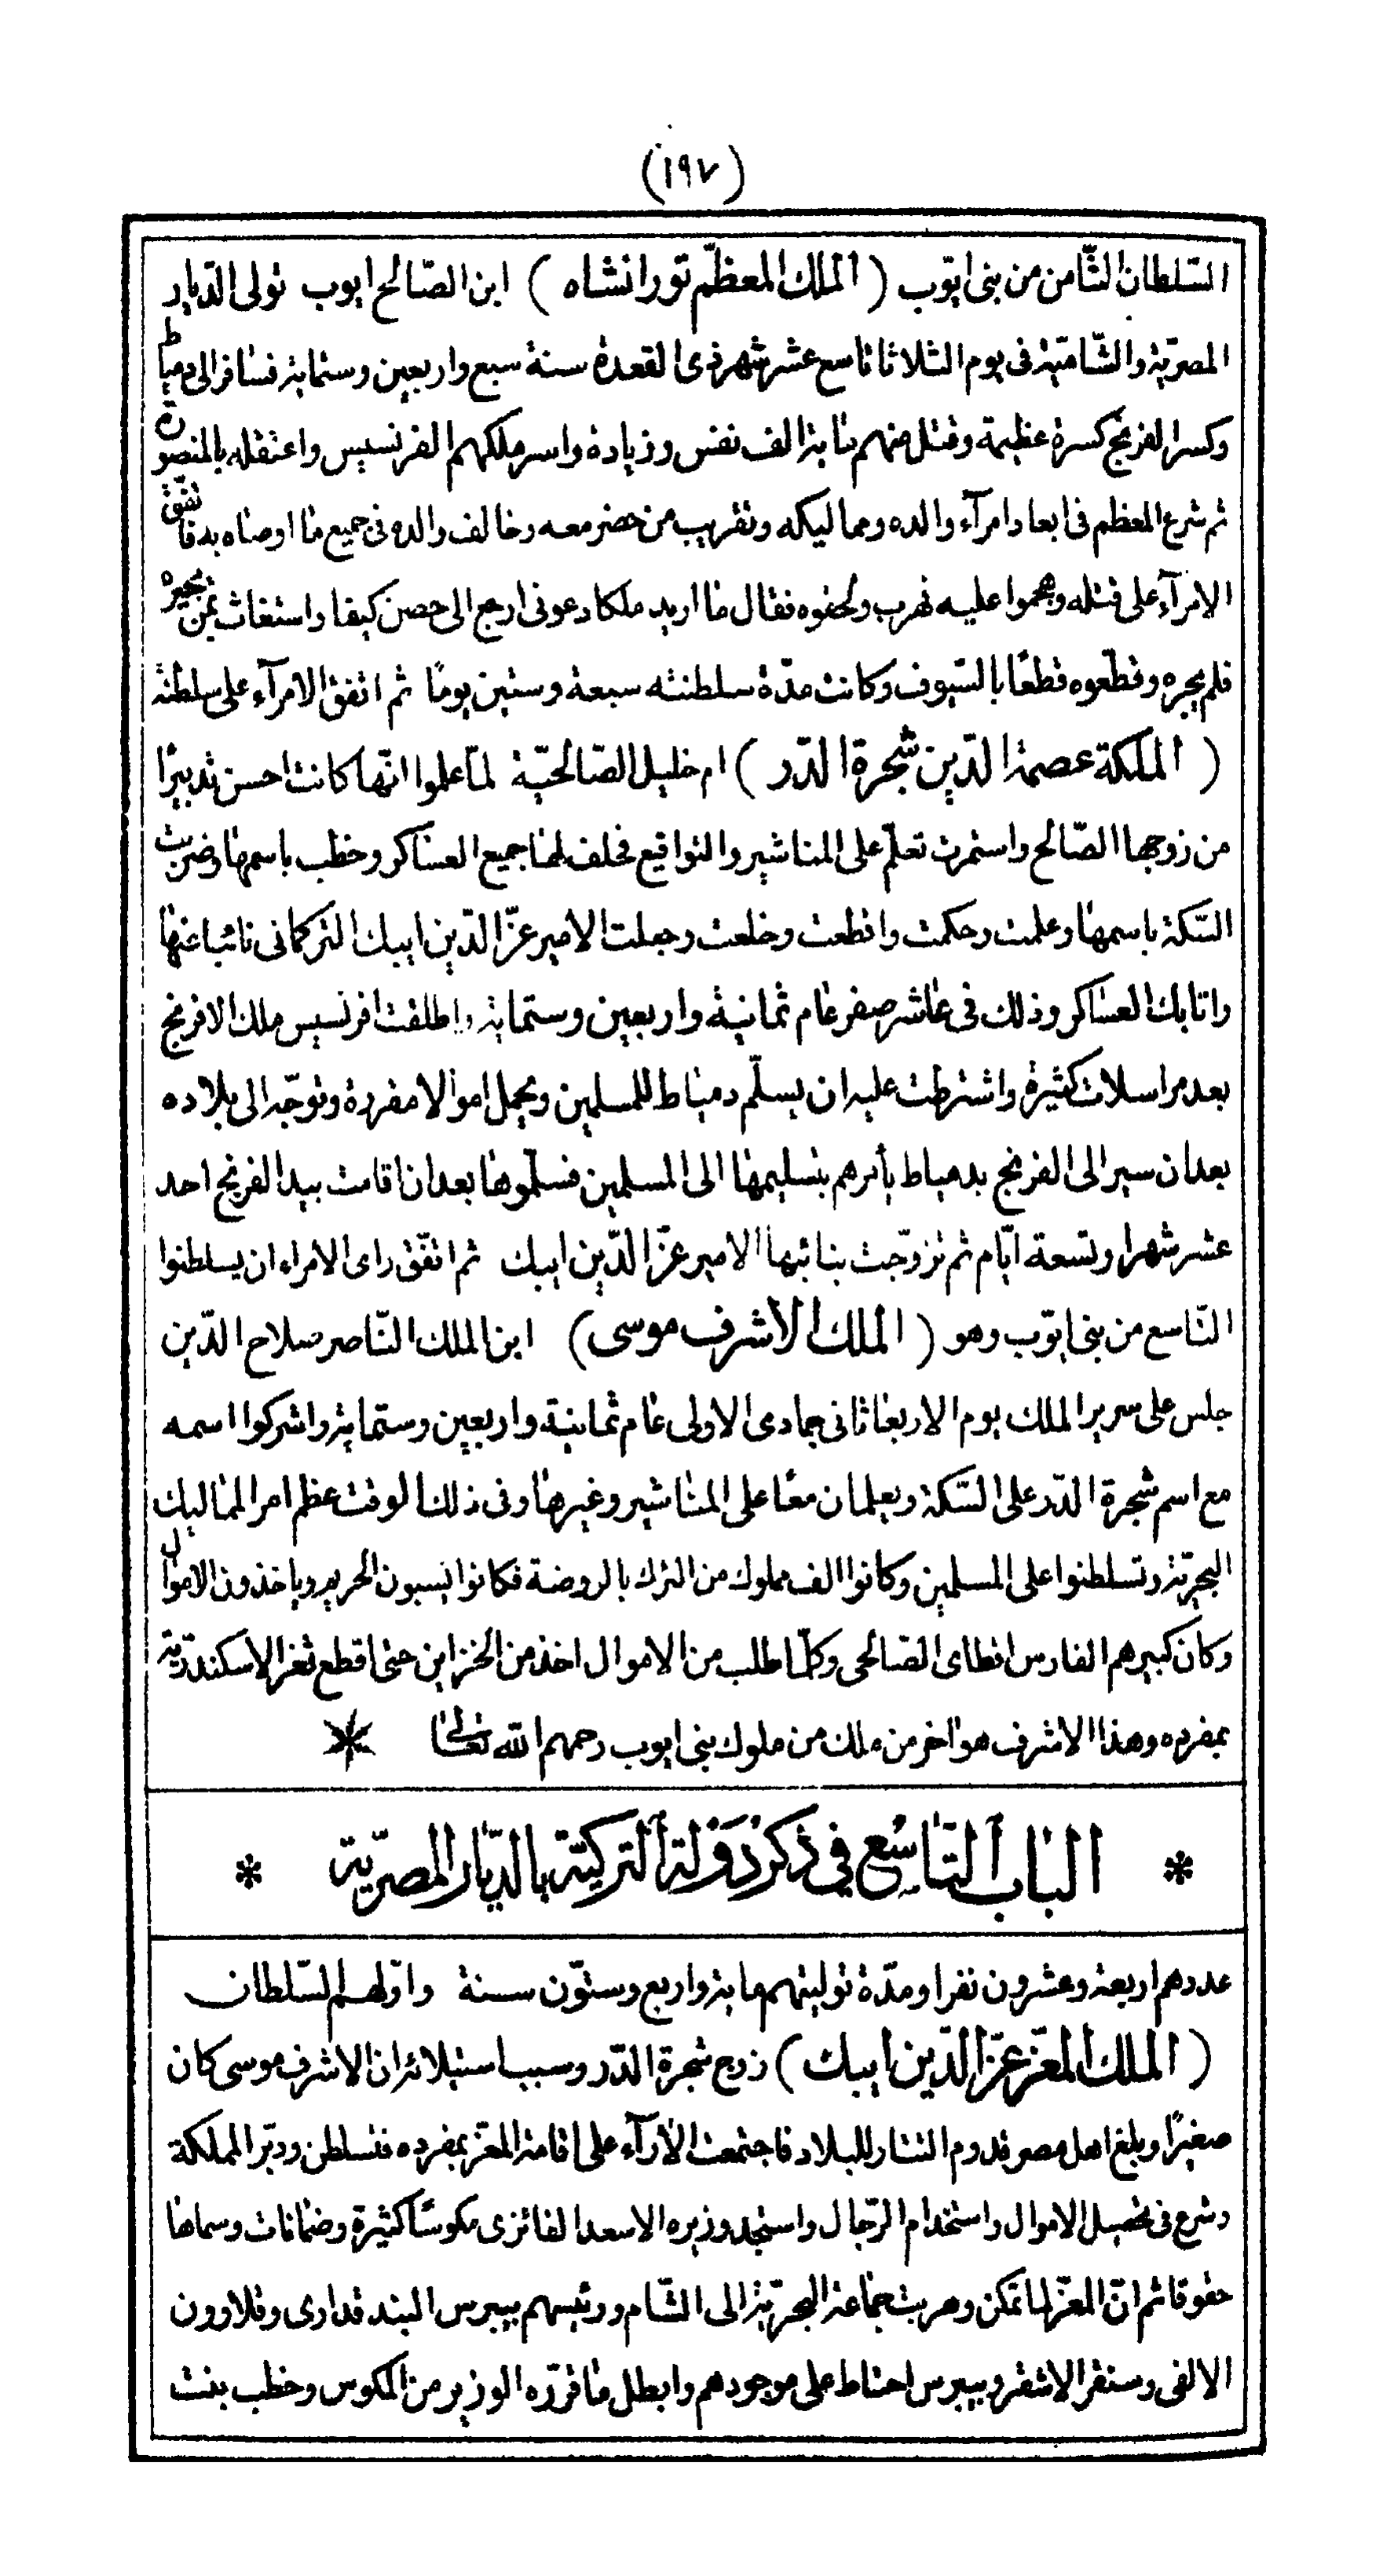 (١٩٧)
السّلطان الثّامن من بنى ايّوب ( الملك المعظّم تورانشاه ) ابن الصّالح ايوب تولى الدّيار
المصريّة والشّاميّة فى يوم الثلاثا تاسع عشر شهر ذى القعدة سنة سبع واربعين وستماية فسافر الى دمياط
وكسر الفرنج كسرة عظيمة وقتل منهم ماية الف نفس وزيادة واسر ملكهم الفرنسيس واعتقله بالمنصورة
ثم شرع المعظم فى ابعاد امرآء والده ومماليكه وتقريب من حضر معه وخالف والده فى جميع ما اوصاه به فاتّفق
الامرآء على قتله وهجموا عليه فهرب ولحقوه فقال ما اريد ملكا دعونى ارجع الى حصن كيفا واستغاث بمن يجيره
فلم يجره وقطّعوه قطعًا بالسّيوف وكانت مدّة سلطنته سبعة وستين يومًا ثم اتفق الامرآء على سلطنة
( الملكة عصمة الدّين شجرة الدّر ) ام خليل الصّالحيّة لمّا علموا انّها كانت احسن تدبيرًا
من زوجها الصّالح واستمرت تعلّم على المناشير والتواقيع فحلف لها جميع العساكر وخطب باسمها وضربت
السّكة باسمها وعلمت وحكمت واقطعت وخلعت وجعلت الامير عزّ الدّين ايبك التركمانى نائبا عنها
واتابك العساكر وذلك فى عاشر صفر عام ثمانية واربعين وستماية واطلقت افرنسيس ملك الافرنج
بعد مراسلات كثيرة واشترطت عليه ان يسلّم دمياط للمسلمين ويحمل اموالا مفردة وتوجّه الى بلاده
بعد ان سير الى الفرنج بدمياط يأمرهم بتسليمها الى المسلمين فسلّموها بعد ان اقامت بيد الفرنج احد
عشر شهرا وتسعة ايّام ثم تزوّجت بنائبها الامير عزّ الدّين ايبك ثم اتّفق راى الامراء ان يسلطنوا
التّاسع من بنى ايّوب وهو ( الملك الاشرف موسى ) ابن الملك النّاصر صلاح الدّين
جلس على سرير الملك يوم الاربعا ثانى جمادى الاولى عام ثمانية واربعين وستماية واشركوا اسمه
مع اسم شجرة الدّر على السّكة ويعلمان معًا على المناشير وغيرها وفى ذلك الوقت عظم امر المماليك
البحريّة وتسلطنوا على المسلمين وكانوا الف مملوك من الترك بالروضة فكانوا يسبون الحريم وياخذون الاموال
وكان كبيرهم الفارس اقطاى الصّالحى وكلّما طلب من الاموال اخذ من الخزاين حتى اقطع ثغر الاسكندريّة
بمفرده وهذا الاشرف هو اخر من ملك من ملوك بنى ايوب رحمهم الله تعالى
* الباب التّاسع في ذكر دولة التركيّة بالدّيار المصريّة *
عددهم اربعة وعشرون نفرا ومدّة توليتهم ماية واربع وستّون سنة واوّلهم السّلطان
( الملك المعزّ عزّ الدّين ايبك ) زوج شجرة الدّر وسبب استيلائه ان الاشرف موسى كان
صغيرًا وبلغ اهل مصر قدوم التتار للبلاد فاجتمعت الآرآء على اقامة المعزّ بمفرده فتسلطن ودبّر المملكة
وشرع فى تحصيل الاموال واستخدام الرّجال واستجد وزيره الاسعد الفائزى مكوسًا كثيرة وضمانات وسماها
حقوقا ثم انّ المعزّ لما تمكن وهربت جماعة البحريّة الى الشّام ورئيسهم بيبرس البندقدارى وقلاوون
الالفى وسنقر الاشقر وبيبرس احتاط على موجودهم وابطل ما قرّره الوزير من المكوس وخطب بنت